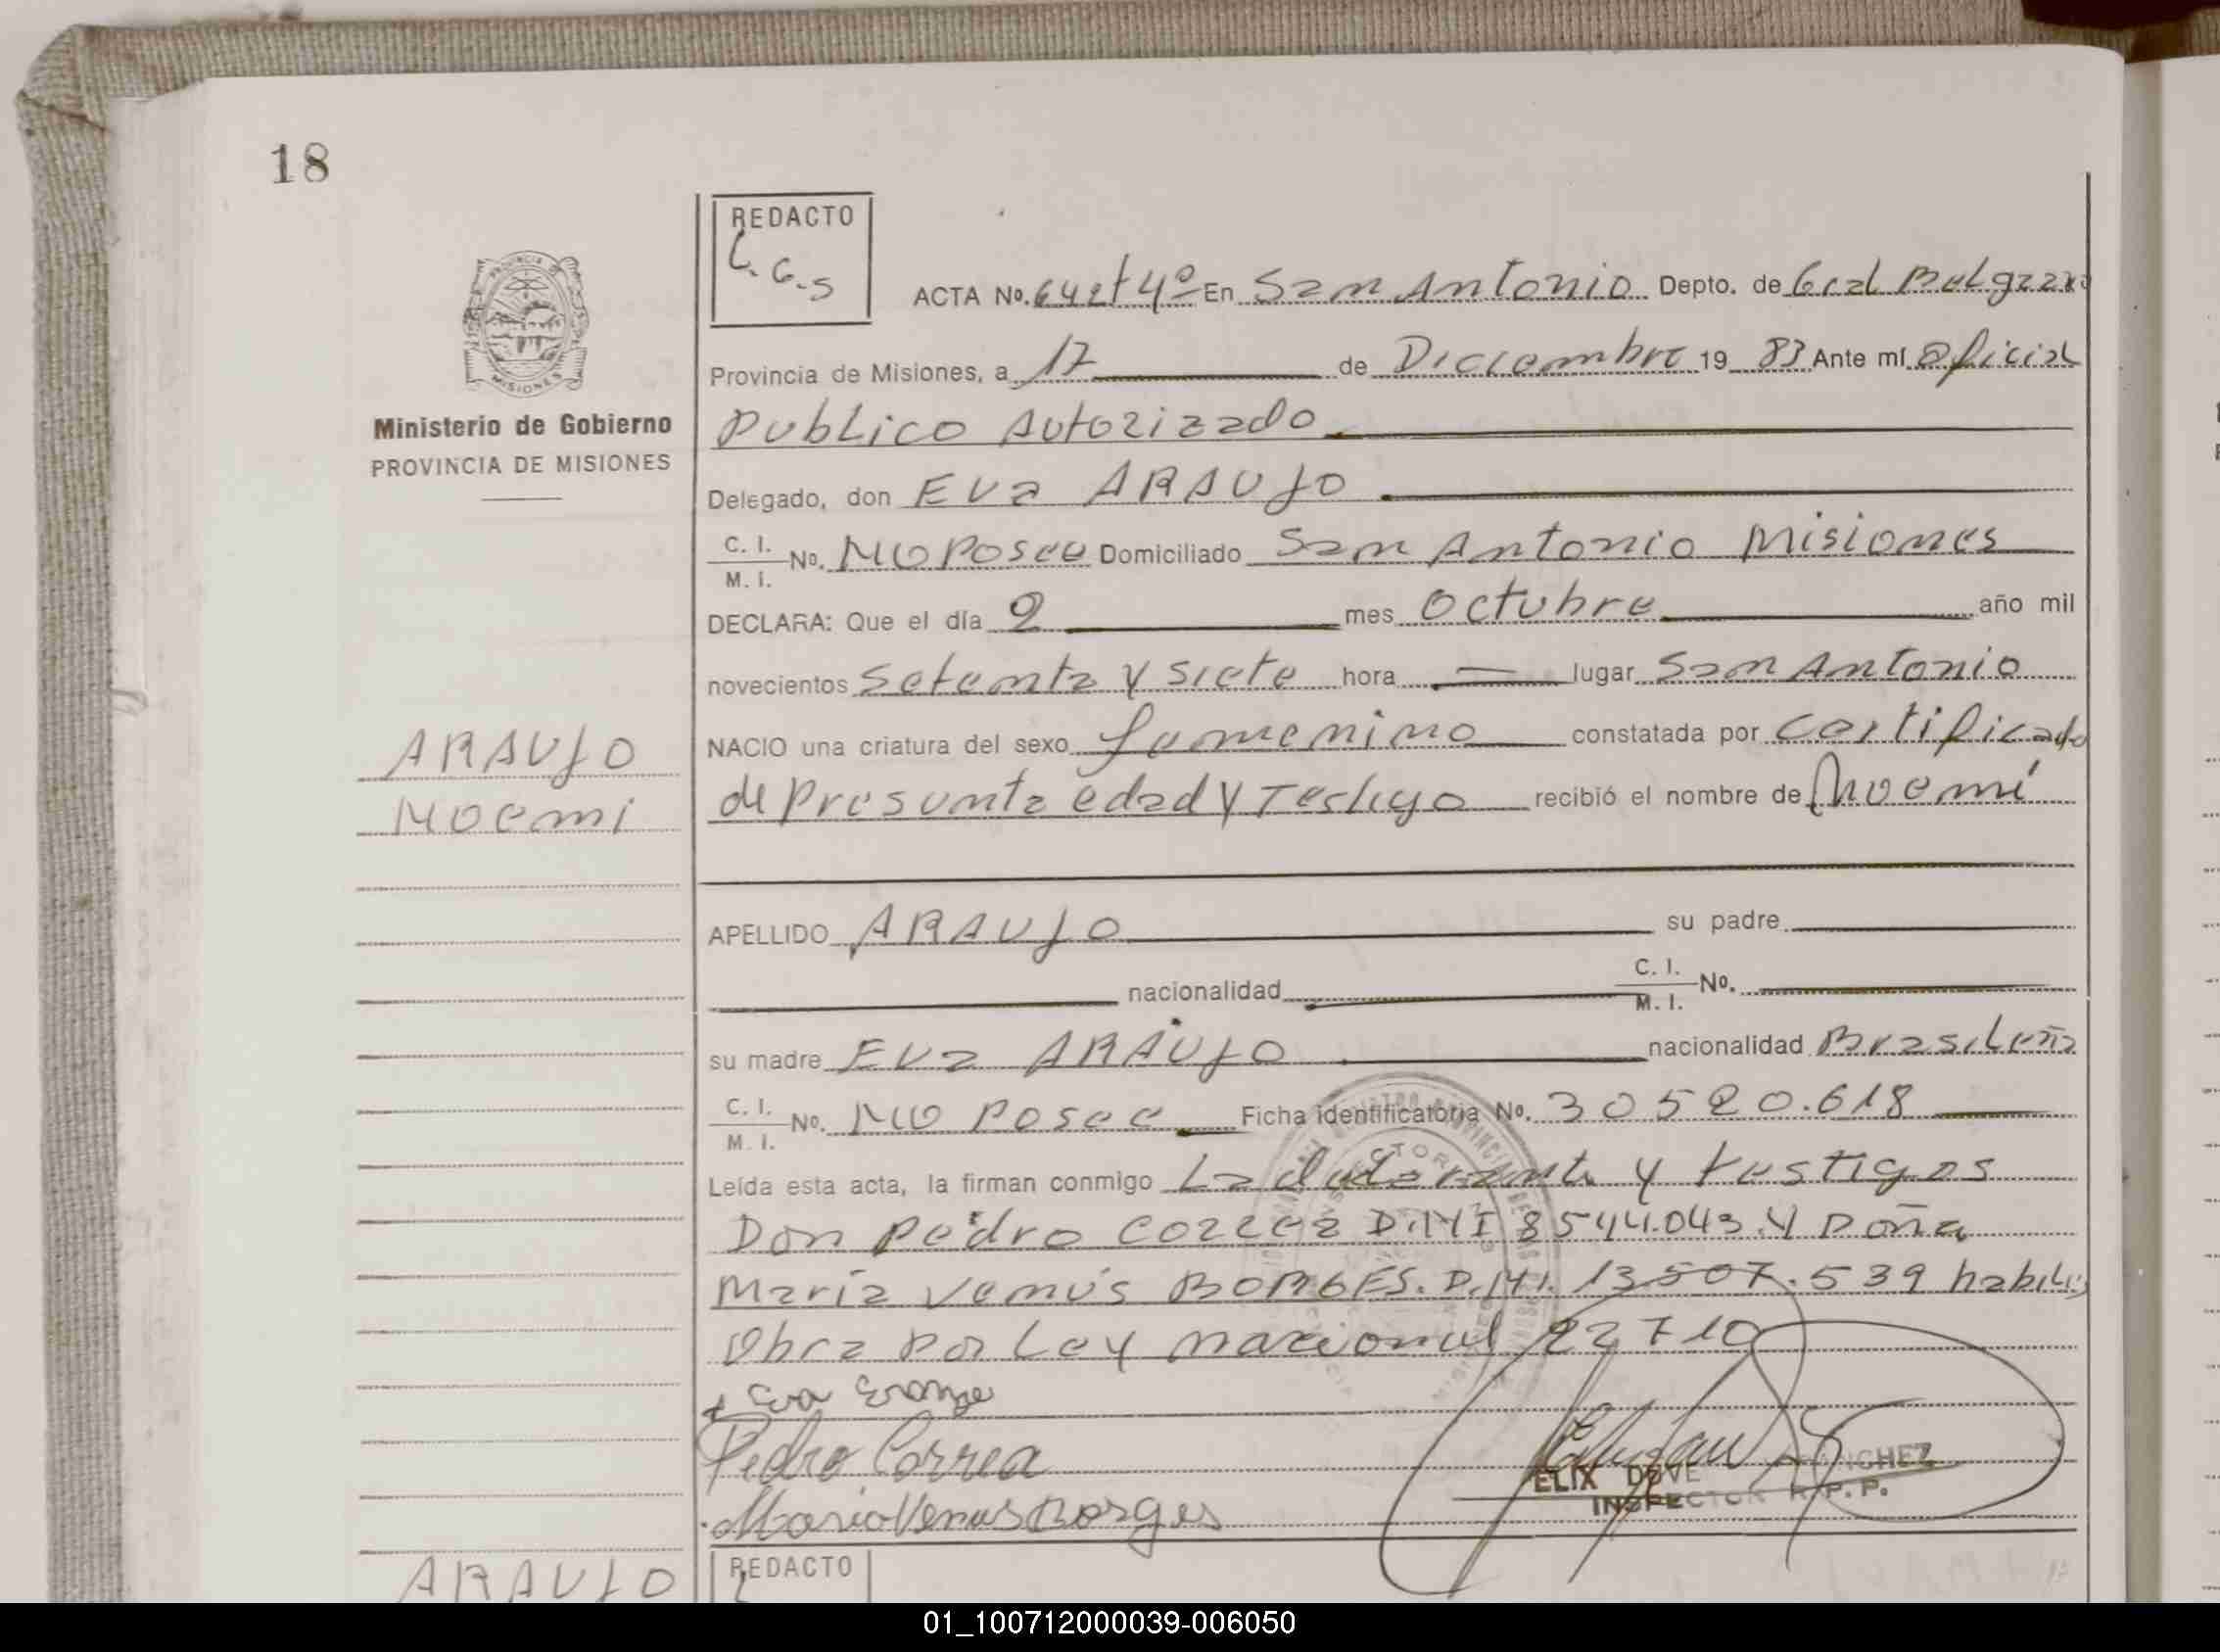 18
REDACTO
L.G.S
ACTA No. 642 t 4º En San Antonio Depto. de Gral Belgrano
Provincia de Misiones, a 17 de Diciembre 19 83 Ante mí Oficial
Ministerio de Gobierno
PROVINCIA DE MISIONES
Publico Autorizado
Delegado, don Eva ARAUJO
C. I. / M. I. No. NO Posee Domiciliado San Antonio Misiones
DECLARA: Que el día 2 mes Octubre año mil
novecientos setenta y siete hora lugar San Antonio
ARAUJO
Noemi
NACIO una criatura del sexo femenino constatada por certificado
de presunta edad y Testigo recibió el nombre de Noemí
APELLIDO ARAUJO su padre
nacionalidad C. I. / M. I. No.
su madre Eva ARAUJO nacionalidad Brasileña
C. I. / M. I. No. NO Posee Ficha identificatoria No. 30520.618
Leída esta acta, la firman conmigo La declarante y testigos
Don Pedro Correa D.M.I 8544.043. y Doña
María Venus BORGES. D.M.I. 13507.539 habiles
Obra por Ley nacional 22710
Pedro Correa
Maria Venus Borges
INSPECTOR R.P.P.
ARAUJO
REDACTO
01_100712000039-006050